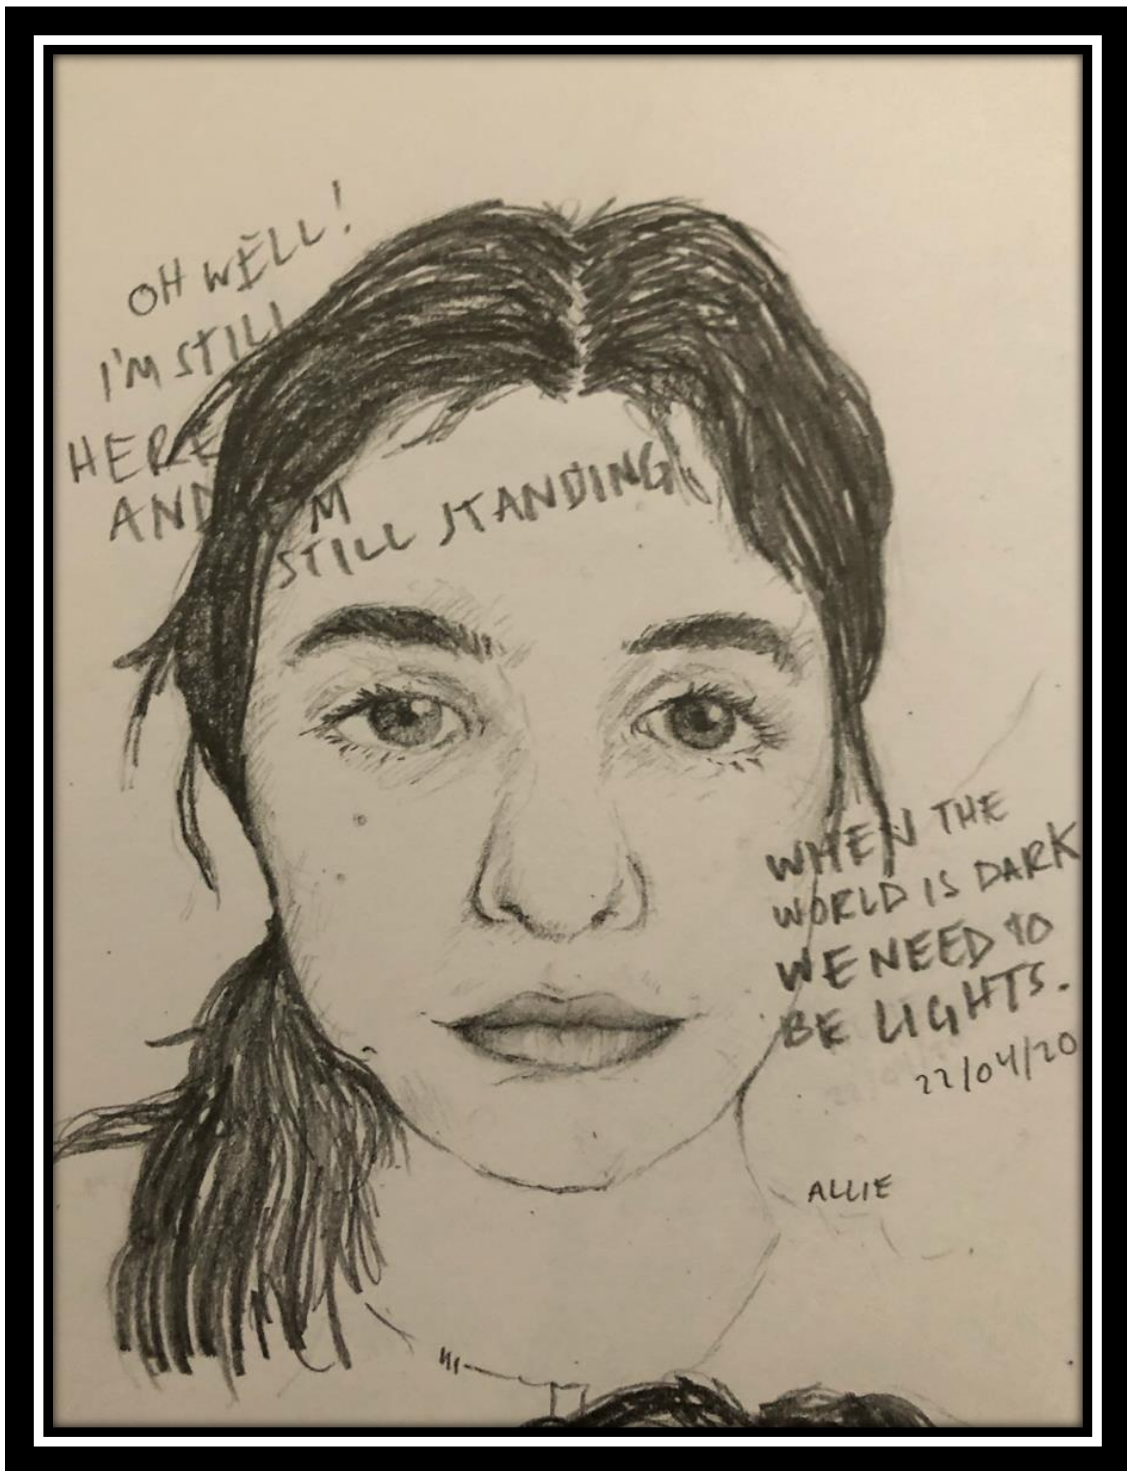 OH WELL!
I'M STILL
HERE
AND I'M
STILL STANDING
WHEN THE
WORLD IS DARK
WE NEED TO
BE LIGHTS.
22/04/20
ALLIE